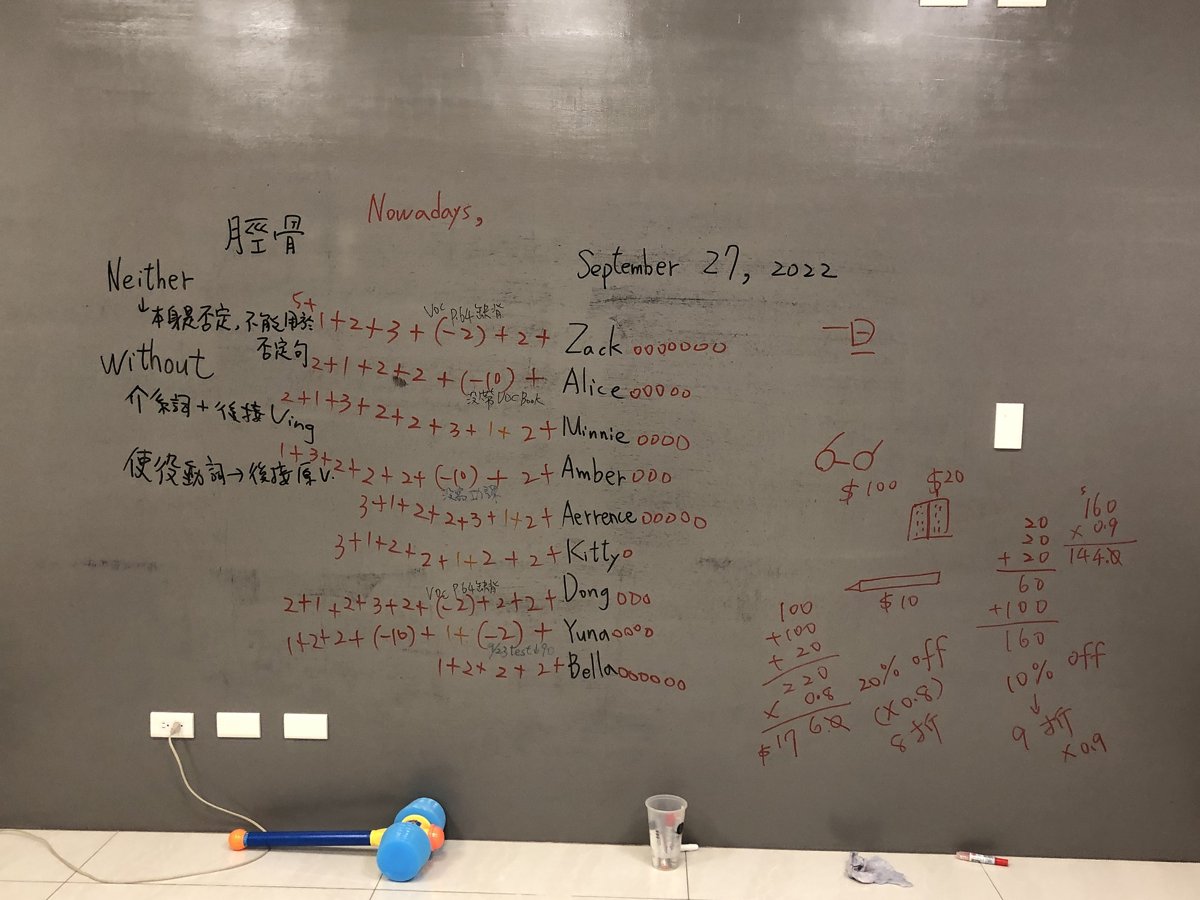 Nowadays,
脛骨
September 27, 2022
Neither
↓本身是否定,不能用於
否定句
Without
介系詞+後接Ving
使役動詞→後接原V.
VOC P.64缺背
5+1+2+3+(-2)+2+ Zack ooooooo
2+1+2+2+(-10)+ Alice ooooo
沒帶VOC Book
2+1+3+2+2+3+1+2+ Minnie oooo
1+3+2+2+2+(-10)+2+ Amber ooo
3+1+2+2+3+1+2+ Aerrence ooooo
3+1+2+2+1+2+2+ Kitty o
VOC P.64缺背
2+1+2+3+2+(-2)+2+2+ Dong ooo
1+2+2+(-10)+1+(-2)+ Yuna oooo
1+2+2+2+ Bella oooooo
$100
$20
$10
100
+100
+20
220
× 0.8
$176.0
20% off
(×0.8)
8折
20
20
+20
60
+100
160
160
× 0.9
144.0
10% off
↓
9折
×0.9